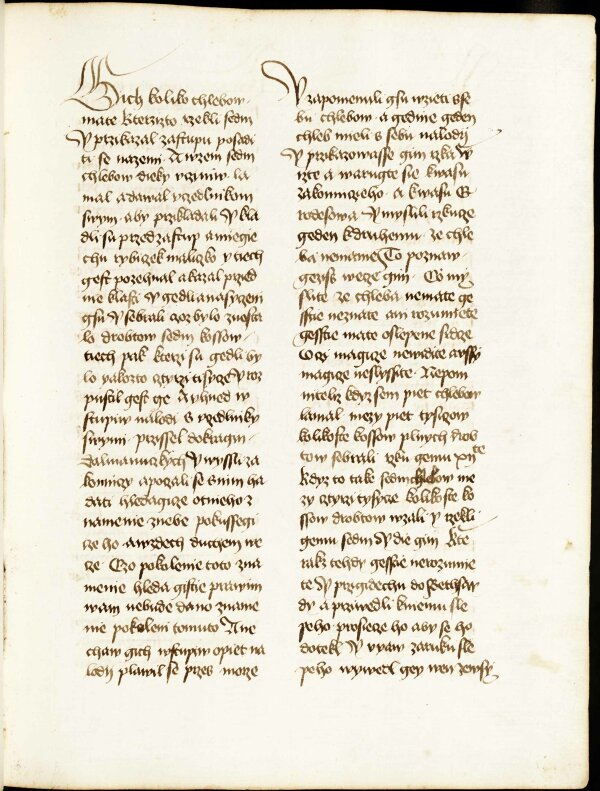 Gich koliko chlebow
mate Kterzizto rzekli sedm
Y przikazal zastupu posadi
ti se nazemi A wzem sedm
chlebow dieky wzniw la
mal a dawal vczedlnikom
swym aby przikladali Y kla
dli su przed zastup a miegie
chu rybiczek maliczko y tiech
gest pozehnal a kazal przed
nie klasti Y gedli a nasyczeni
gsu Y sebrali coz bylo znosta
lo drobtow sedm kossow
tiech pak kterzi su gedli by
lo yakozto cztyrzi tisycze Y roz
pustil gest ge A yhned w
stupiw nalodi s vczedlniky
swymi przissel dokragin
dalmanuczkych Y wyssli za
konnicy a poczali se s nim ha
dati hledagicze otnieho z
namenie znebe pokussegi
cze ho a wzdech duchem we
cze Czo pokolenie toto zna
menie hleda gistie prawim
wam nebude dano zname
nie pokoleni tomuto A ne
chaw gich wstupiw opiet na
lodij plawil se przes morze
Y zapomenuli gsu wzieti sse
bu chlebow a gedine geden
chleb mieli s sebu nalodij
Y przikazowasse gim rzka W
izte a warugte sie kwasu
zakonniczeho a kwasu E
rodesowa Y myslili rzkucze
geden kdruhemu ze chle
ba nemame To poznaw
gezijs wecze gim Co my
slite ze chleba nemate ge
sstie neznate ani rozumiete
gesstie mate oslepene sidcze
Oczi magicze newidite a vssy
magicze neslyssite Nepom
nitelz kdyz sem piet chlebow
lamal mezy piet tysiczow
kolikoste kossow plnych drob
tow sebrali rzku gemu xijte
kdyz to take sedm chlebow me
zy cztyrzi tysycze kolikoste ko
ssow drobtow wzali y rzekli
gemu sedm Y die gim Kte
rakz tehdy gesstie nerozumie
te Y przigidechu do Bethsay
dy a przivedli kniemu sle
peho prosiecze ho aby se ho
dotekl Y vyaw zaruku sle
peho wywedl gey wen zewsy